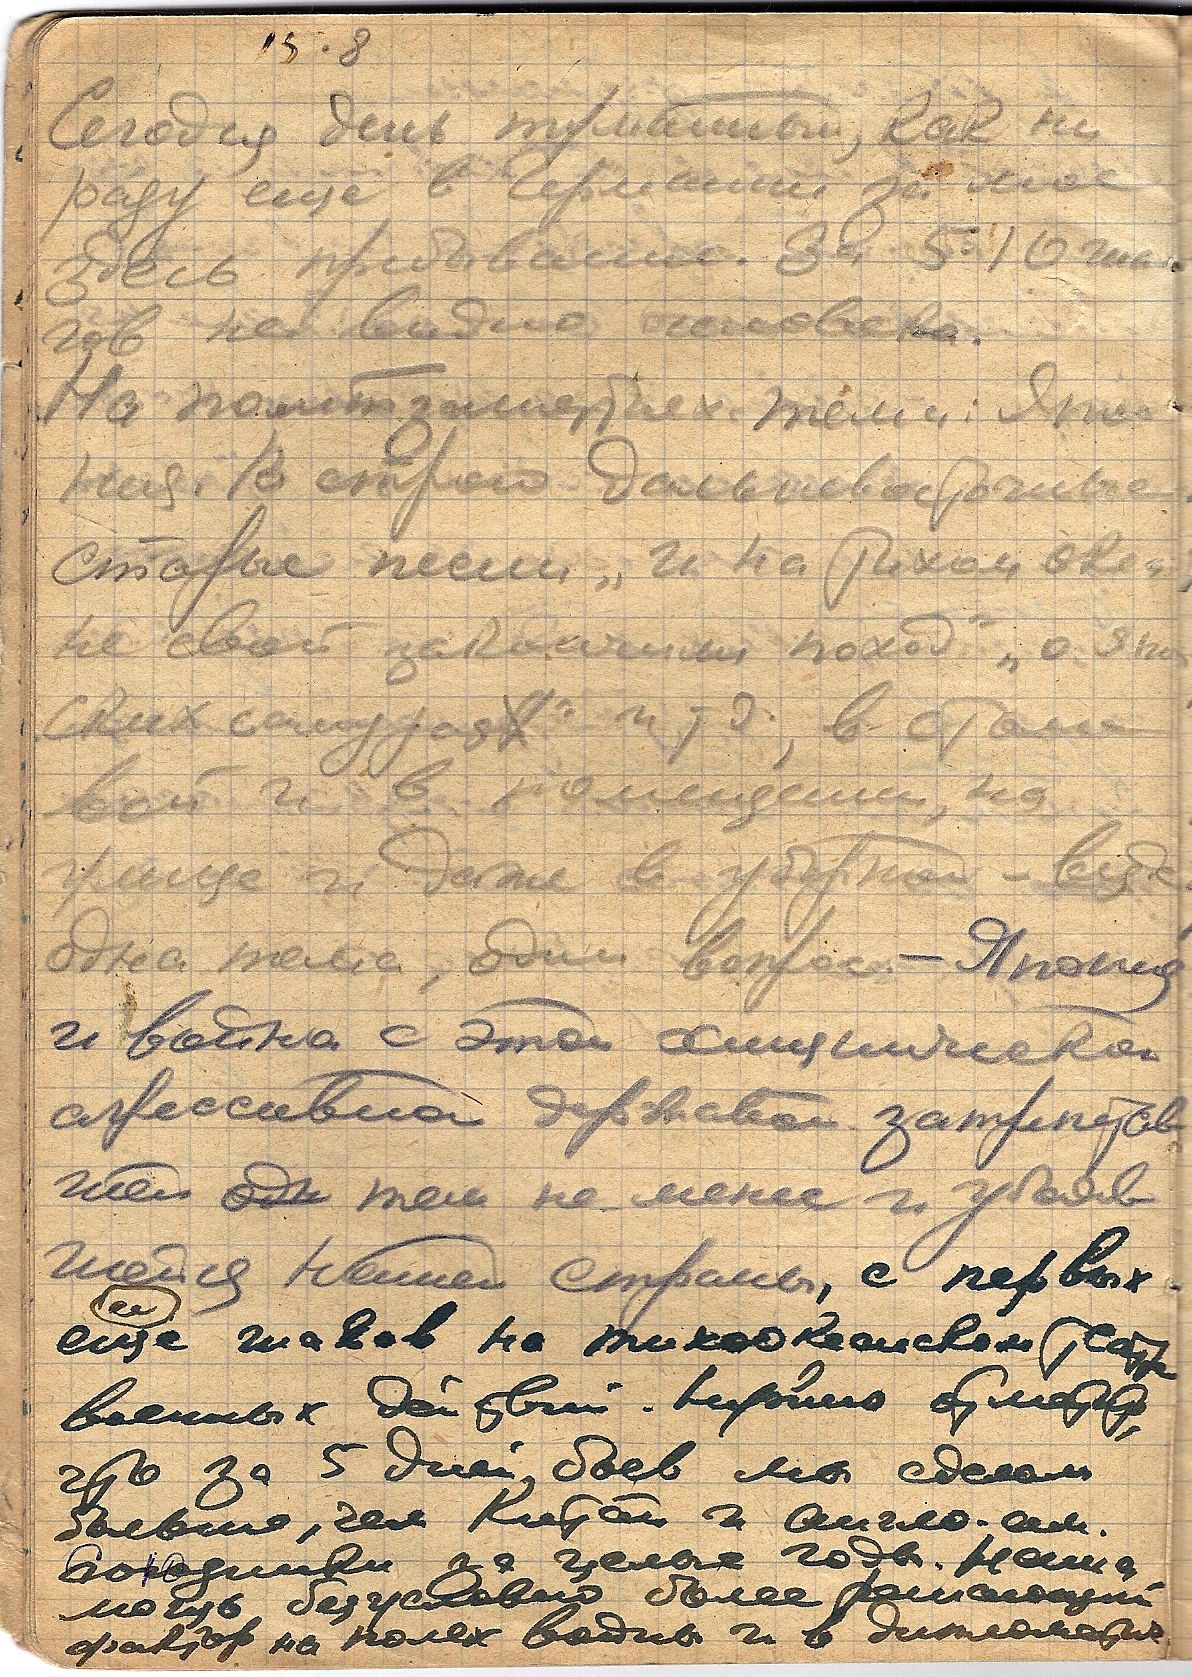 15.8
Сегодня день туманный, как ни
разу еще в Германии за мое
здесь пребывание. За 5-10 ша-
гов не видно человека.
На политзанятиях тема: Япо
ния. В строю дальневосточные
старые песни „и на Тихом океа
не свой закончили поход", „о япон
ских самураях" и т.д., в столо
вой и в помещении, на
улице и даже в уборной – везде
одна тема, один вопрос – Япония
и война с этой хищнической
агрессивной державой, затрепетав
шей тем не менее и убояв
шейся нашей страны, с первых
еще ее шагов на тихоокеанском театре
военных действий. Нужно отметить,
что за 5 дней боев мы сделали
больше, чем Китай и англо-ам.
походники за целые годы. Наша
мощь безусловно более решающий
фактор на полях войны и в дипломатии